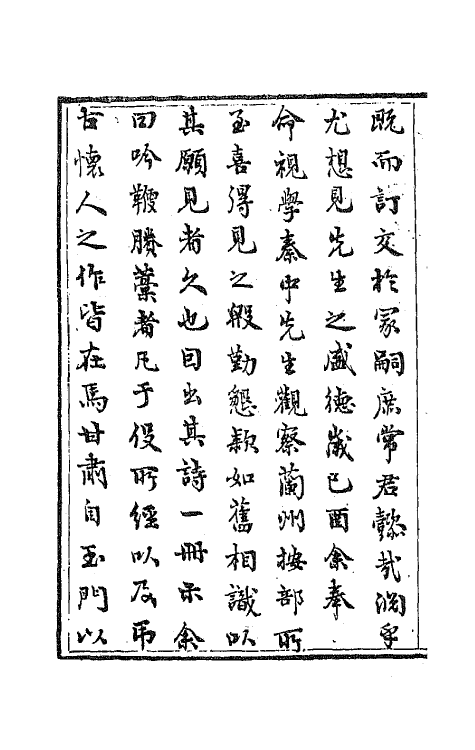 既而訂交於冢嗣庶常君懿哉淵乎
尤想見先生之盛德歲己酉余奉
命視學秦中先生觀察蘭州按部所
至喜得見之殷勤懇款如舊相識以
其願見者久也因出其詩一冊示余
曰吟鞭賸藁者凡于役所經以及弔
古懷人之作皆在焉甘肅自玉門以